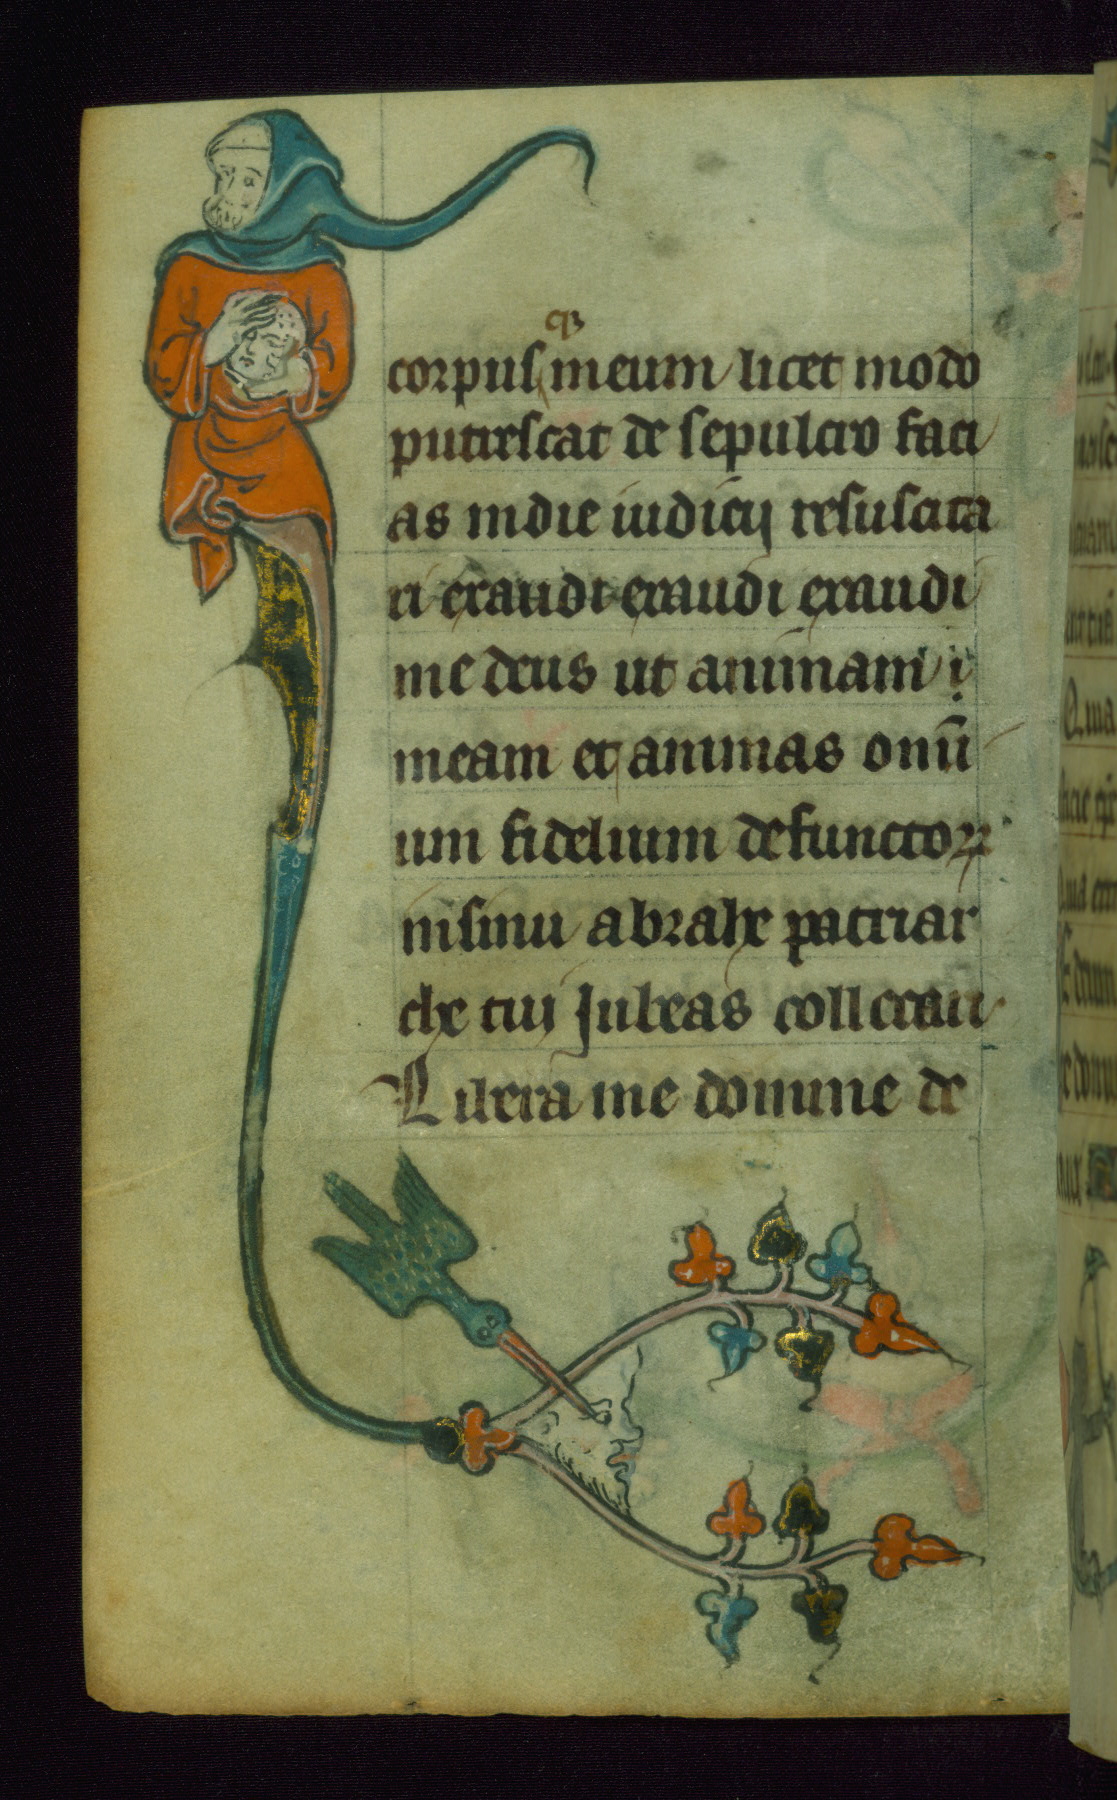 qʒ
corpus meum licet modo
putrescat de sepulcro faci
as in die iudicij resuscita
ri exaudi exaudi exaudi
me deus ut animam
meam et animas oniū
um fidelium defunctoꝝ
in sinu abrahe patriar
che tui Jubeas collocari
Libera me domine de